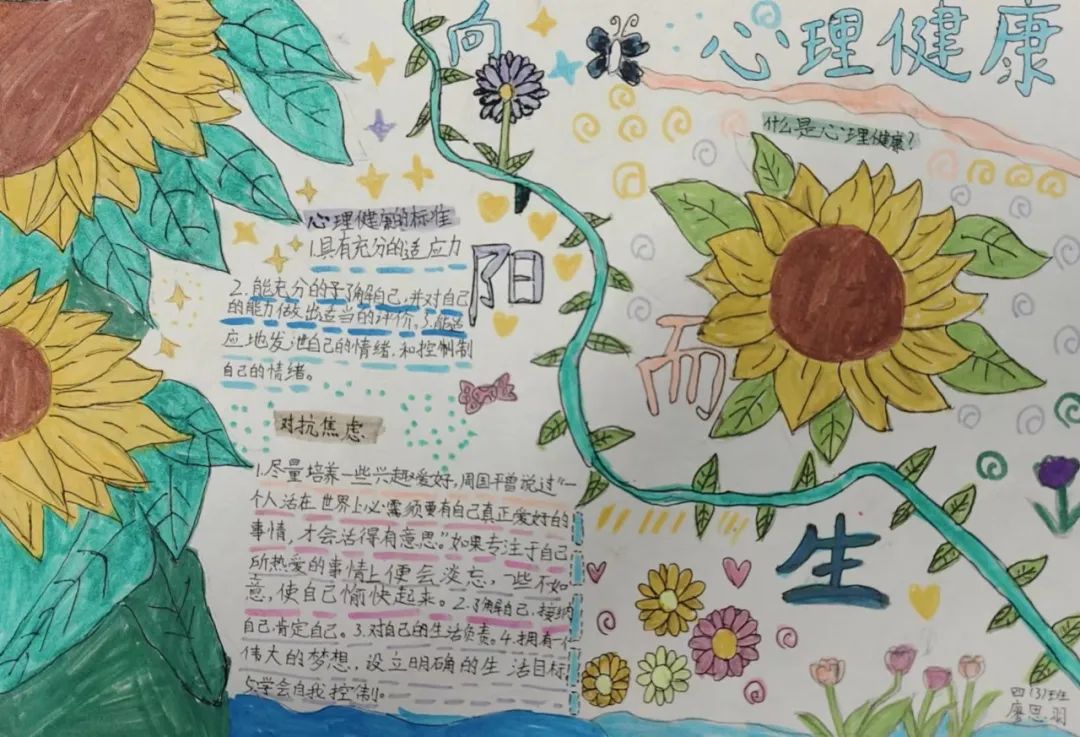 心理健康
向
阳
而
生
什么是心理健康?
心理健康的标准
1.具有充分的适应力
2.能充分的予了解自己,并对自己
的能力做出适当的评价。3.能适
应地发泄自己的情绪,和控制
自己的情绪。
对抗焦虑
1.尽量培养一些兴趣爱好,周国平曾说过“一
个人活在世界上必需须要有自己真正爱好的
事情,才会活得有意思。”如果专注于自己
所热爱的事情上便会淡忘,一些不如
意,使自己愉快起来。2.了解自己,接纳
自己肯定自己。3.对自己的生活负责。4.拥有一个
伟大的梦想,设立明确的生活目标
5.学会自我控制。
四(3)班
廖思羽